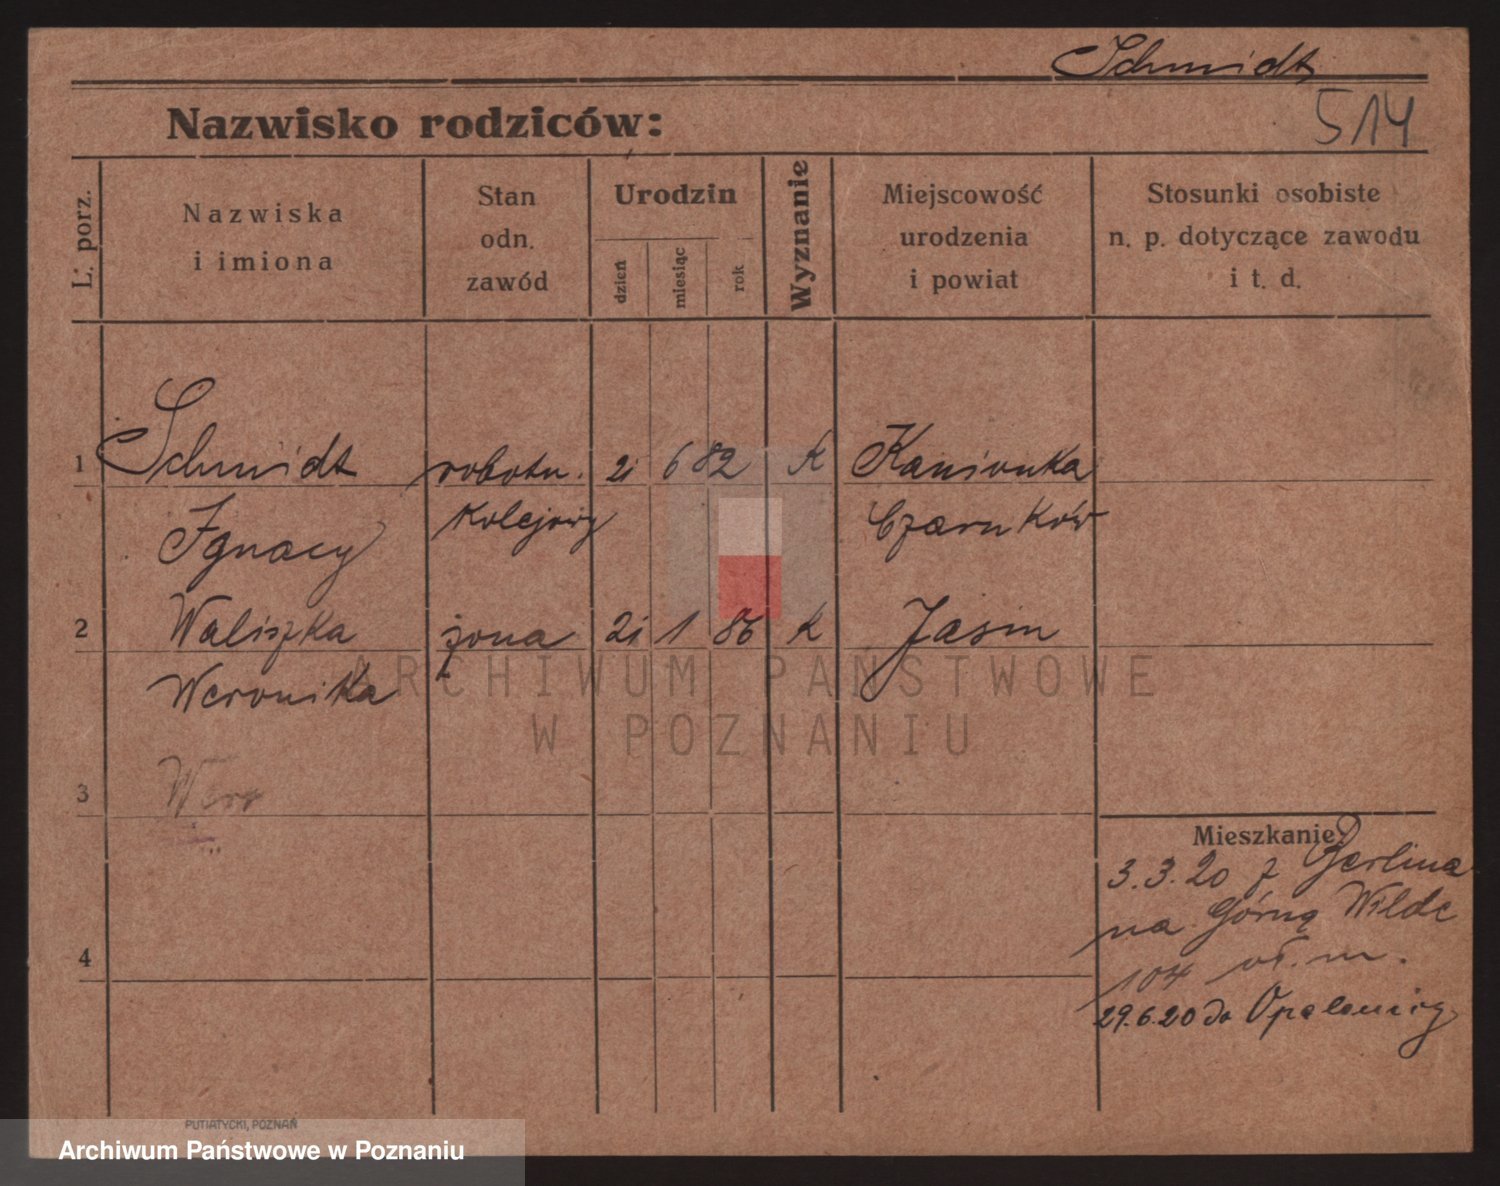 Schmidt
Nazwisko rodziców:
514
L. porz.
Nazwiska
i imiona
Stan
odn.
zawód
Urodzin
dzień
miesiąc
rok
Wyznanie
Miejscowość
urodzenia
i powiat
Stosunki osobiste
n. p. dotyczące zawodu
i t. d.
1 Schmidt robotn. 21 6 82 K Kamionka
Ignacy kolejowy Czarnków
2 Waliszka żona 21 1 86 K Jasin
Weronika
ARCHIWUM PAŃSTWOWE
W POZNANIU
3 Wero
Mieszkanie:
3.3.20 z Berlina
na Górną Wilde
4
104 m.
29.6.20 do Opalenicy
PUTIATYCKI, POZNAŃ
Archiwum Państwowe w Poznaniu